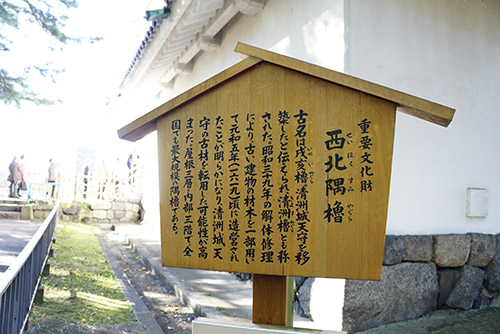 重要文化財
西北隅櫓
せい ほく すみ やぐら
古名は戌亥櫓。清洲城天守を移
いぬ い やぐら
築したと伝えられ、清洲櫓とも称
された。昭和三九年の解体修理
により、古い建物の材木を一部用い
て元和五年(一六一九)頃に造営され
たことが明らかになり、清洲城天
守の古材を転用した可能性が高
まった。屋根三層・内部三階で、全
国でも最大規模の隅櫓である。